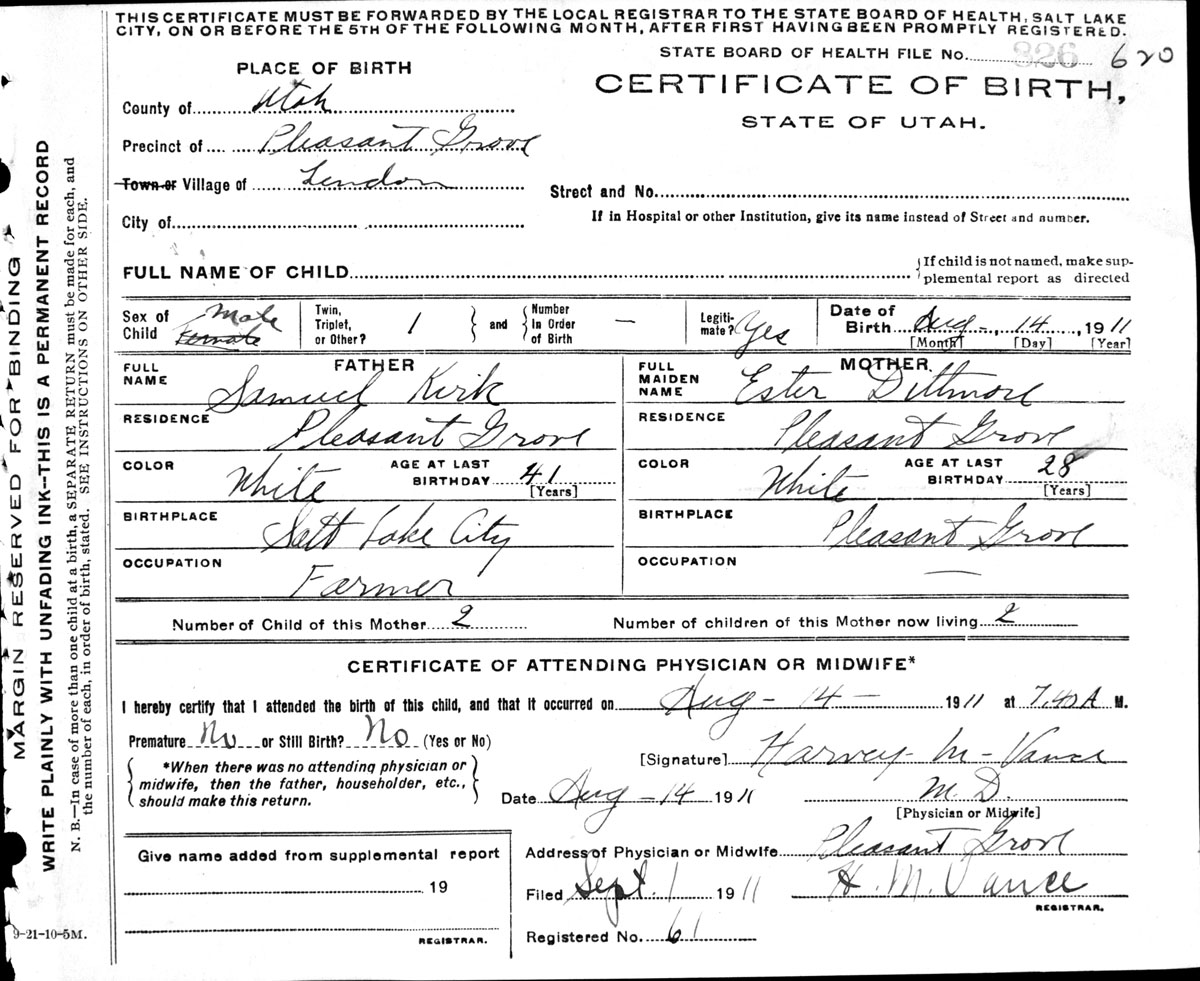 THIS CERTIFICATE MUST BE FORWARDED BY THE LOCAL REGISTRAR TO THE STATE BOARD OF HEALTH, SALT LAKE
CITY, ON OR BEFORE THE 5TH OF THE FOLLOWING MONTH, AFTER FIRST HAVING BEEN PROMPTLY REGISTERED.
STATE BOARD OF HEALTH FILE No. 326 620
PLACE OF BIRTH
CERTIFICATE OF BIRTH,
STATE OF UTAH.
County of Utah
Precinct of Pleasant Grove
Town or Village of Lindon
Street and No.
City of
If in Hospital or other Institution, give its name instead of Street and number.
FULL NAME OF CHILD
If child is not named, make sup-
plemental report as directed
Sex of Child Male Female
Twin, Triplet, or Other? 1 and Number In Order of Birth —
Legiti-mate? Yes
Date of Birth Aug-, 14, 1911
[Month] [Day] [Year]
FATHER
FULL NAME Samuel Kirk
RESIDENCE Pleasant Grove
COLOR White AGE AT LAST BIRTHDAY 41
[Years]
BIRTHPLACE Salt Lake City
OCCUPATION Farmer
MOTHER.
FULL MAIDEN NAME Ester Dittmore
RESIDENCE Pleasant Grove
COLOR White AGE AT LAST BIRTHDAY 28
[Years]
BIRTHPLACE Pleasant Grove
OCCUPATION —
Number of Child of this Mother 2 Number of children of this Mother now living 2
CERTIFICATE OF ATTENDING PHYSICIAN OR MIDWIFE*
I hereby certify that I attended the birth of this child, and that it occurred on Aug - 14 - 1911 at 7.40 A M.
Premature No or Still Birth? No (Yes or No)
*When there was no attending physician or
midwife, then the father, householder, etc.,
should make this return.
[Signature] Harvey M- Vance
Date Aug - 14 1911 M.D.
[Physician or Midwife]
Give name added from supplemental report
19
REGISTRAR.
Address of Physician or Midwife Pleasant Grove
Filed Sept. 1 1911 H. M. Vance
REGISTRAR.
Registered No. 61
MARGIN RESERVED FOR BINDING
WRITE PLAINLY WITH UNFADING INK--THIS IS A PERMANENT RECORD
N. B.—In case of more than one child at a birth, a SEPARATE RETURN must be made for each, and
the number of each, in order of birth, stated. SEE INSTRUCTIONS ON OTHER SIDE.
9-21-10-5M.